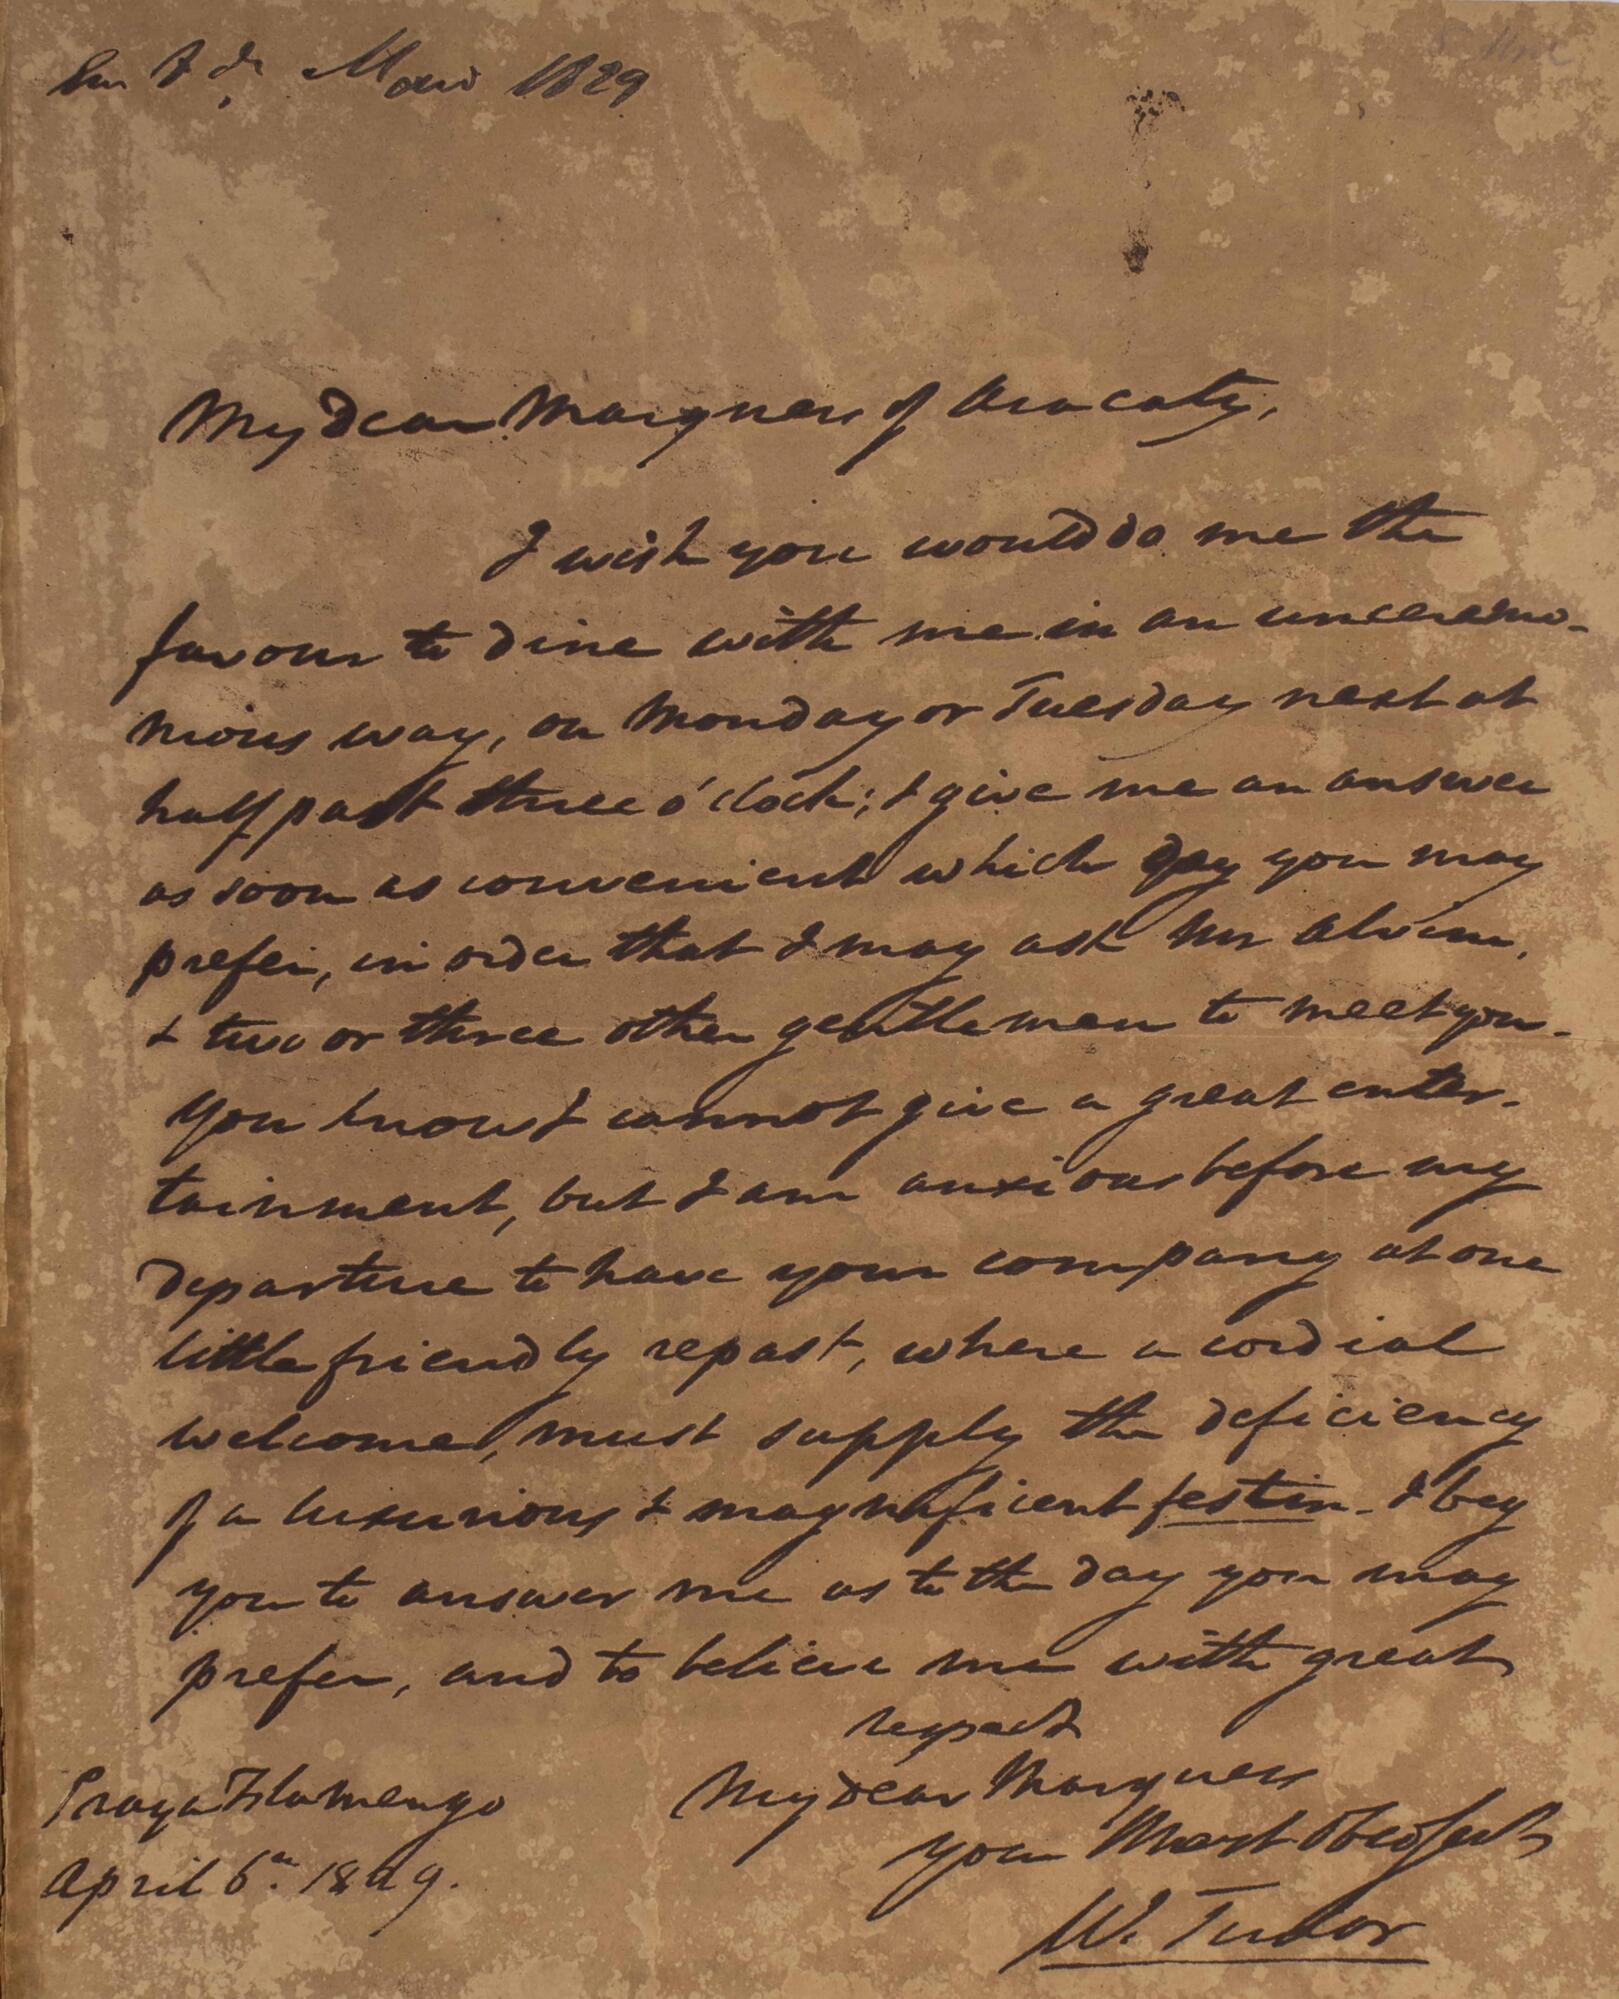 Em 7 de Maio 1829
My Dear Marquess of Aracaty,
I wish you would do me the
favour to dine with me in an unceremo-
nious way, on Monday or Tuesday next at
half past three o'clock; & give me an answer
as soon as convenient which day you may
prefer, in order that I may ask Mr
& two or three other gentlemen to meet you.
You know I cannot give a great enter-
tainment, but I am anxious before my
departure to have your company at one
little friendly repast, where a cordial
welcome, must supply the deficiency
of a luxurious & magnificent festin. I beg
you to answer me as to the day you may
prefer, and to believe me with great
respect
My dear Marquess
your Most
W. Tudor
Praya Flamengo
April 6th 1829.